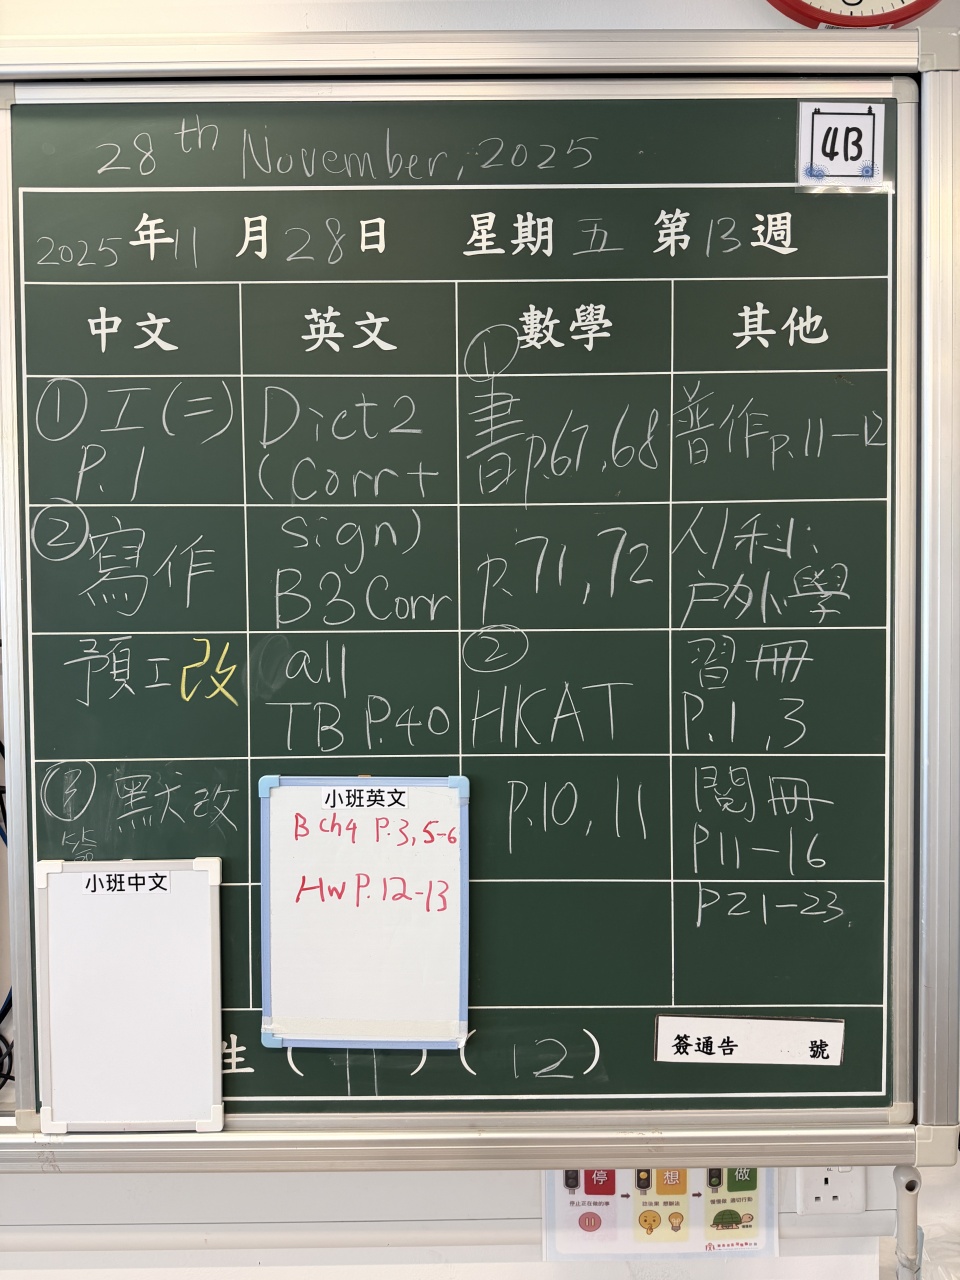 28th November, 2025
4B
2025年11月28日 星期五 第13週
中文 英文 數學 其他
① 工(二)
P.1
② 寫作
預工改
③ 默改
Dict 2
(Corr +
sign)
B3 Corr
all
TB P.40
①
書p.67, 68
p.71, 72
②
HKAT
P.10, 11
普作p.11-12
人/科:
戶外學
習冊
P.1, 3
閱冊
P11-16
P21-23.
小班中文
小班英文
B ch4 P.3, 5-6
HW P.12-13
生 (11) (12)
簽通告 號
停
想
做